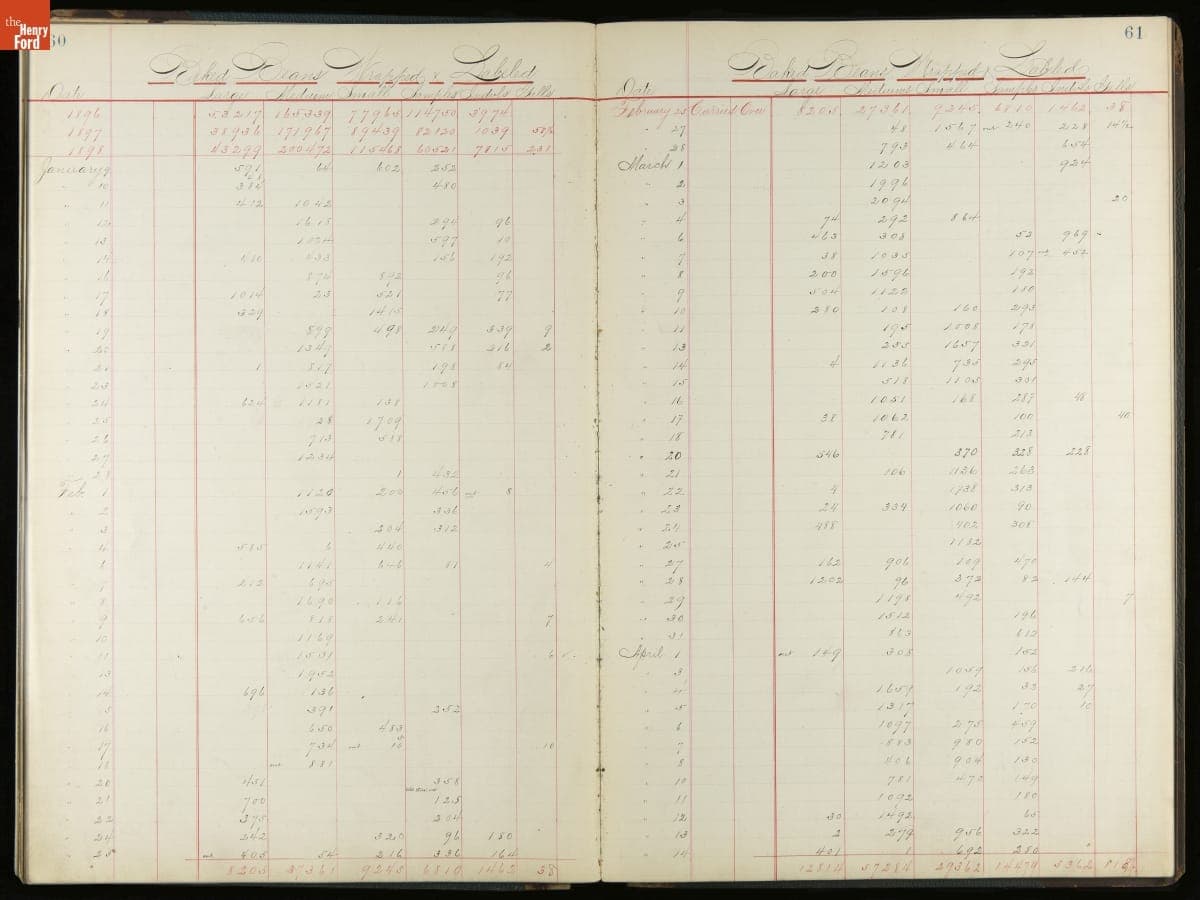 the Henry Ford
60
Baked Beans Wrapped & Labeled
Date Large Medium Small Samples Ind'ls Gills
1896 53217 165339 77965 114750 3974
1897 38936 171967 89439 82120 1039
1898 43299 200472 115468 60521 7815 231
January 9 591 64 602 252
" 10 384 480
" 11 412 1042
" 12 1615 294 96
" 13 597
" 14 433 156 192
" 16 874 892 96
" 17 1014 23 521 77
" 18 329 1415
" 19 899 498 249 339 9
" 20 1347 588 216 2
" 21 1 817 198 84
" 23 1521 1008
" 24 624 1181 138
" 25 28 1709
" 26 713 518
" 27 1234
" 28 1 432
Feb. 1 1120 200 456 8
" 2 1593 336
" 3 204 312
" 4 585 6 440
" 1141 646 81 4
" 7 212 695
" 8 1690 116
" 9 656 818 241 7
" 10 1169
" 11 1531 6
" 13 1952
" 14 696 136
" 15 391 252
" 16 650 483
" 17 734 10
" 18 881
" 20 451 358
" 21 700 125
" 22 375 204
" 24 242 320 96 180
" 25 405 54 216 336 164
8205 37361 9245 6810 1462 38
61
Baked Beans Wrapped & Labeled
Date Large Medium Small Samples Ind'ls Gills
February 25 Carried Over 8205 27361 9245 6810 1462 38
" 27 48 1567 240 228 14½
" 28 793 464 654
March 1 1203 924
" 2 1996
" 3 2094 20
" 4 74 292 864
" 6 463 308 52 969
" 7 38 1035 107 452
" 8 200 1596 192
" 9 504 1122 180
" 10 280 108 160 293
" 11 195 1008 178
" 13 235 1657 321
" 14 4 1136 735 295
" 15 518 1105 331
" 16 1051 168 287 48
" 17 38 1062 100 40
" 18 781 213
" 20 546 370 328 228
" 21 106 1136 263
" 22 4 1738 313
" 23 24 334 1060 90
" 24 488 402 308
" 25 1182
" 27 162 906 109 470
" 28 1202 96 372 82 144
" 29 1198 492 7
" 30 1512 196
" 31 863 612
April 1 149 308 152
" 3 1059 136 216
" 4 1659 192 33 27
" 5 1317 170 10
" 6 1097 275 459
" 7 883 980 152
" 8 406 904 130
" 10 781 470 149
" 11 1092 180
" 12 30 1492 65
" 13 2 279 956 322
" 14 401 1 692 280
12814 57284 29362 14474 5362